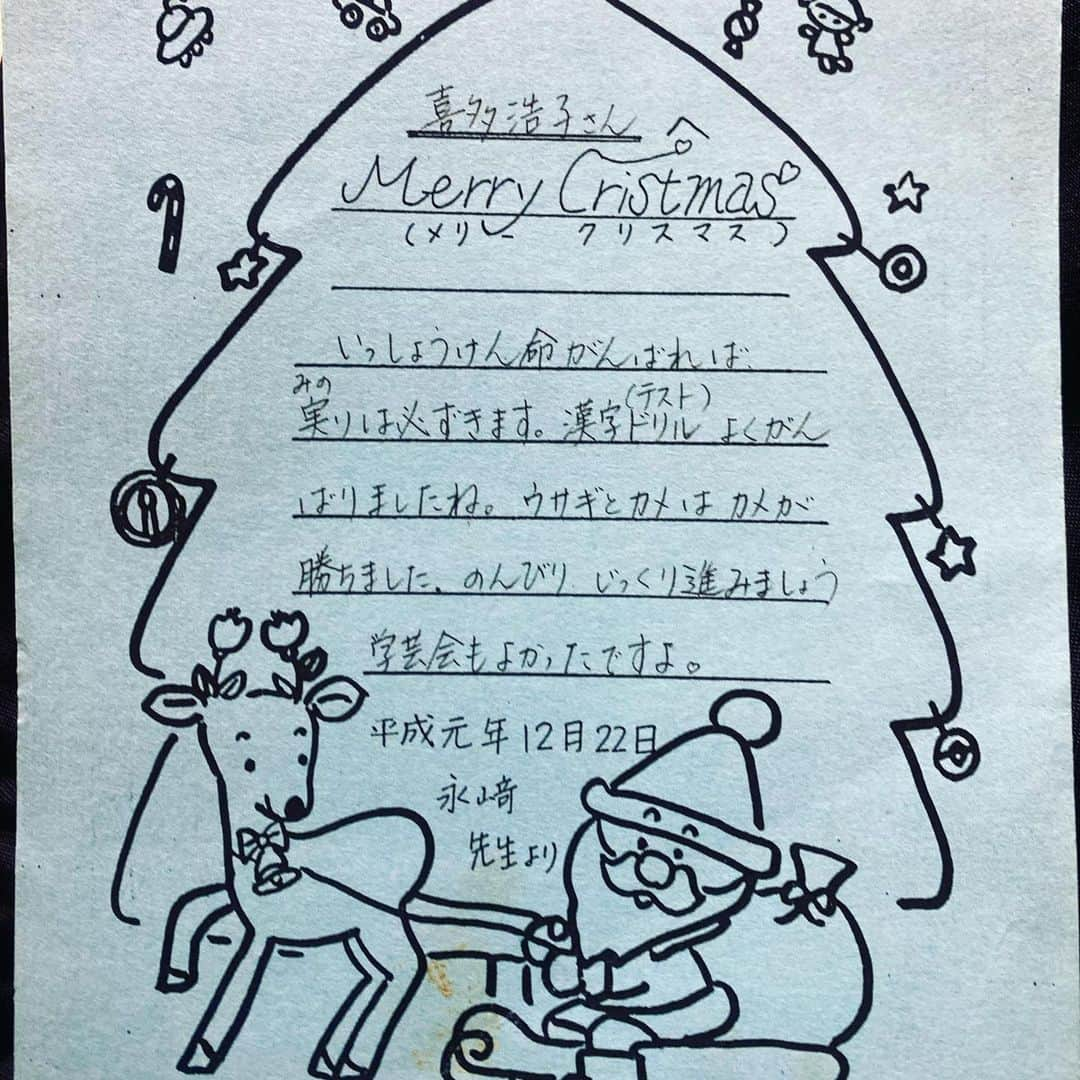 喜多浩子さんへ
Merry Cristmas
(メリー クリスマス)
いっしょうけん命がんばれば、
みの
(テスト)
実りは必ずきます。漢字ドリル よくがん
ばりましたね。ウサギとカメは カメが
勝ちました。のんびり じっくり進みましょう
学芸会もよかったですよ。
平成元年12月22日
永﨑
先生より